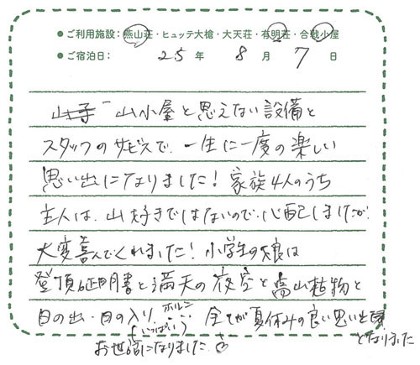 ●ご利用施設：燕山荘・ヒュッテ大槍・大天荘・有明荘・合戦小屋
●ご宿泊日： 25 年 8 月 7 日
山小屋と思えない設備と
スタッフのサービスで、一生に一度の楽しい
思い出になりました！家族4人のうち
主人は、山好きではないので、心配しましたが
大変喜んでくれました！小学生の娘は
登頂証明書と満天の夜空と高山植物と
日の出・日の入り、ホルン
(いっぱい) 全てが夏休みの良い思い出
となりました
お世話になりました